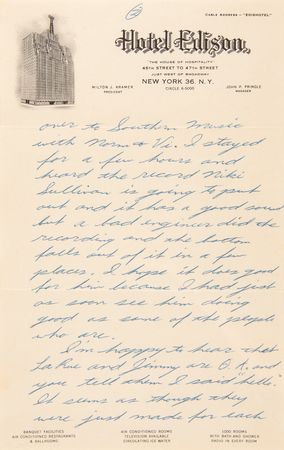 ②
CABLE ADDRESS — "EDISHOTEL"
Hotel Edison.
"THE HOUSE OF HOSPITALITY"
46TH STREET TO 47TH STREET
JUST WEST OF BROADWAY
NEW YORK 36. N.Y.
MILTON J. KRAMER
PRESIDENT
CIRCLE 6-5000
JOHN P. PRINGLE
MANAGER
over to Southern Music
with Norm & Vi. I stayed
for a few hours and
heard the record Niki
Sullivan is going to put
out and it has a good sound
but a bad engineer did the
recording and the bottom
falls out of it in a few
places. I hope it does good
for him because I had just
as soon see him doing
good as some of the people
who are.
I'm happy to hear that
and Jimmy are O.K. and
you tell them I said "hello."
It seems as though they
were just made for each
BANQUET FACILITIES
AIR CONDITIONED RESTAURANTS
& BALLROOMS
AIR CONDITIONED ROOMS
TELEVISION AVAILABLE
CIRCULATING ICE WATER
1000 ROOMS
WITH BATH AND SHOWER
RADIO IN EVERY ROOM